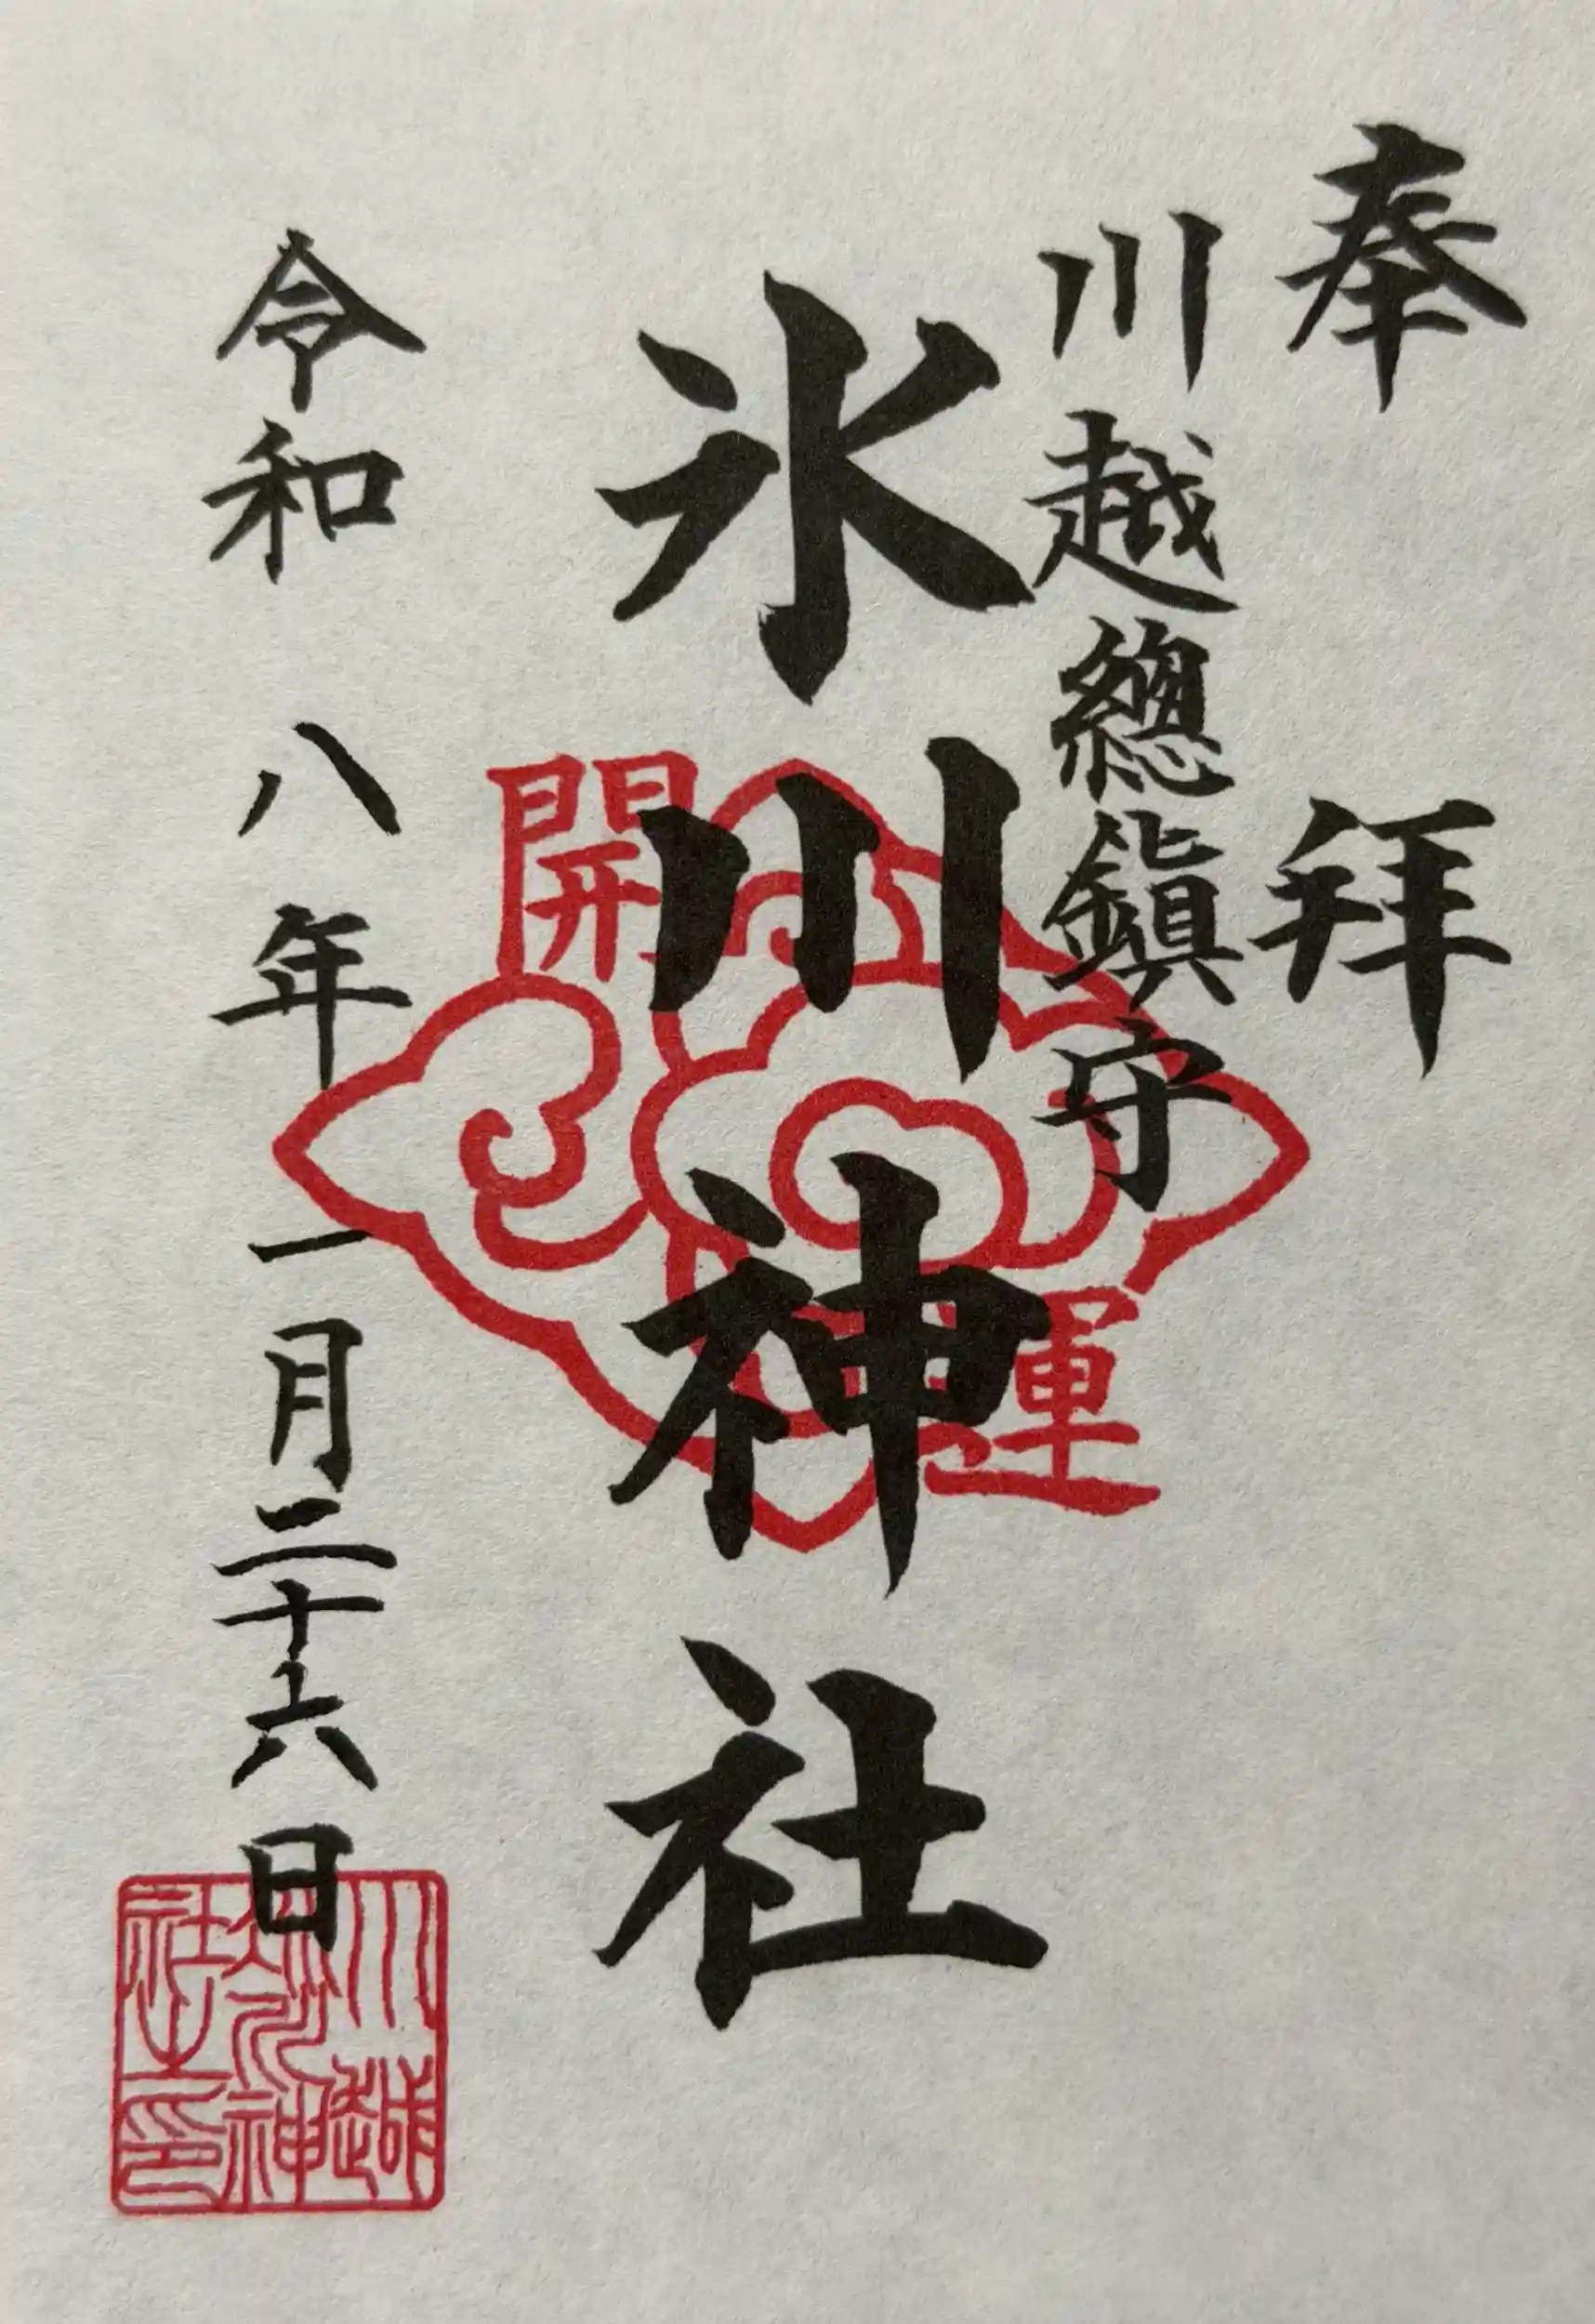 奉拜
川越總鎮守
氷川神社
開運
令和八年一月二十六日
川越氷川神社之印